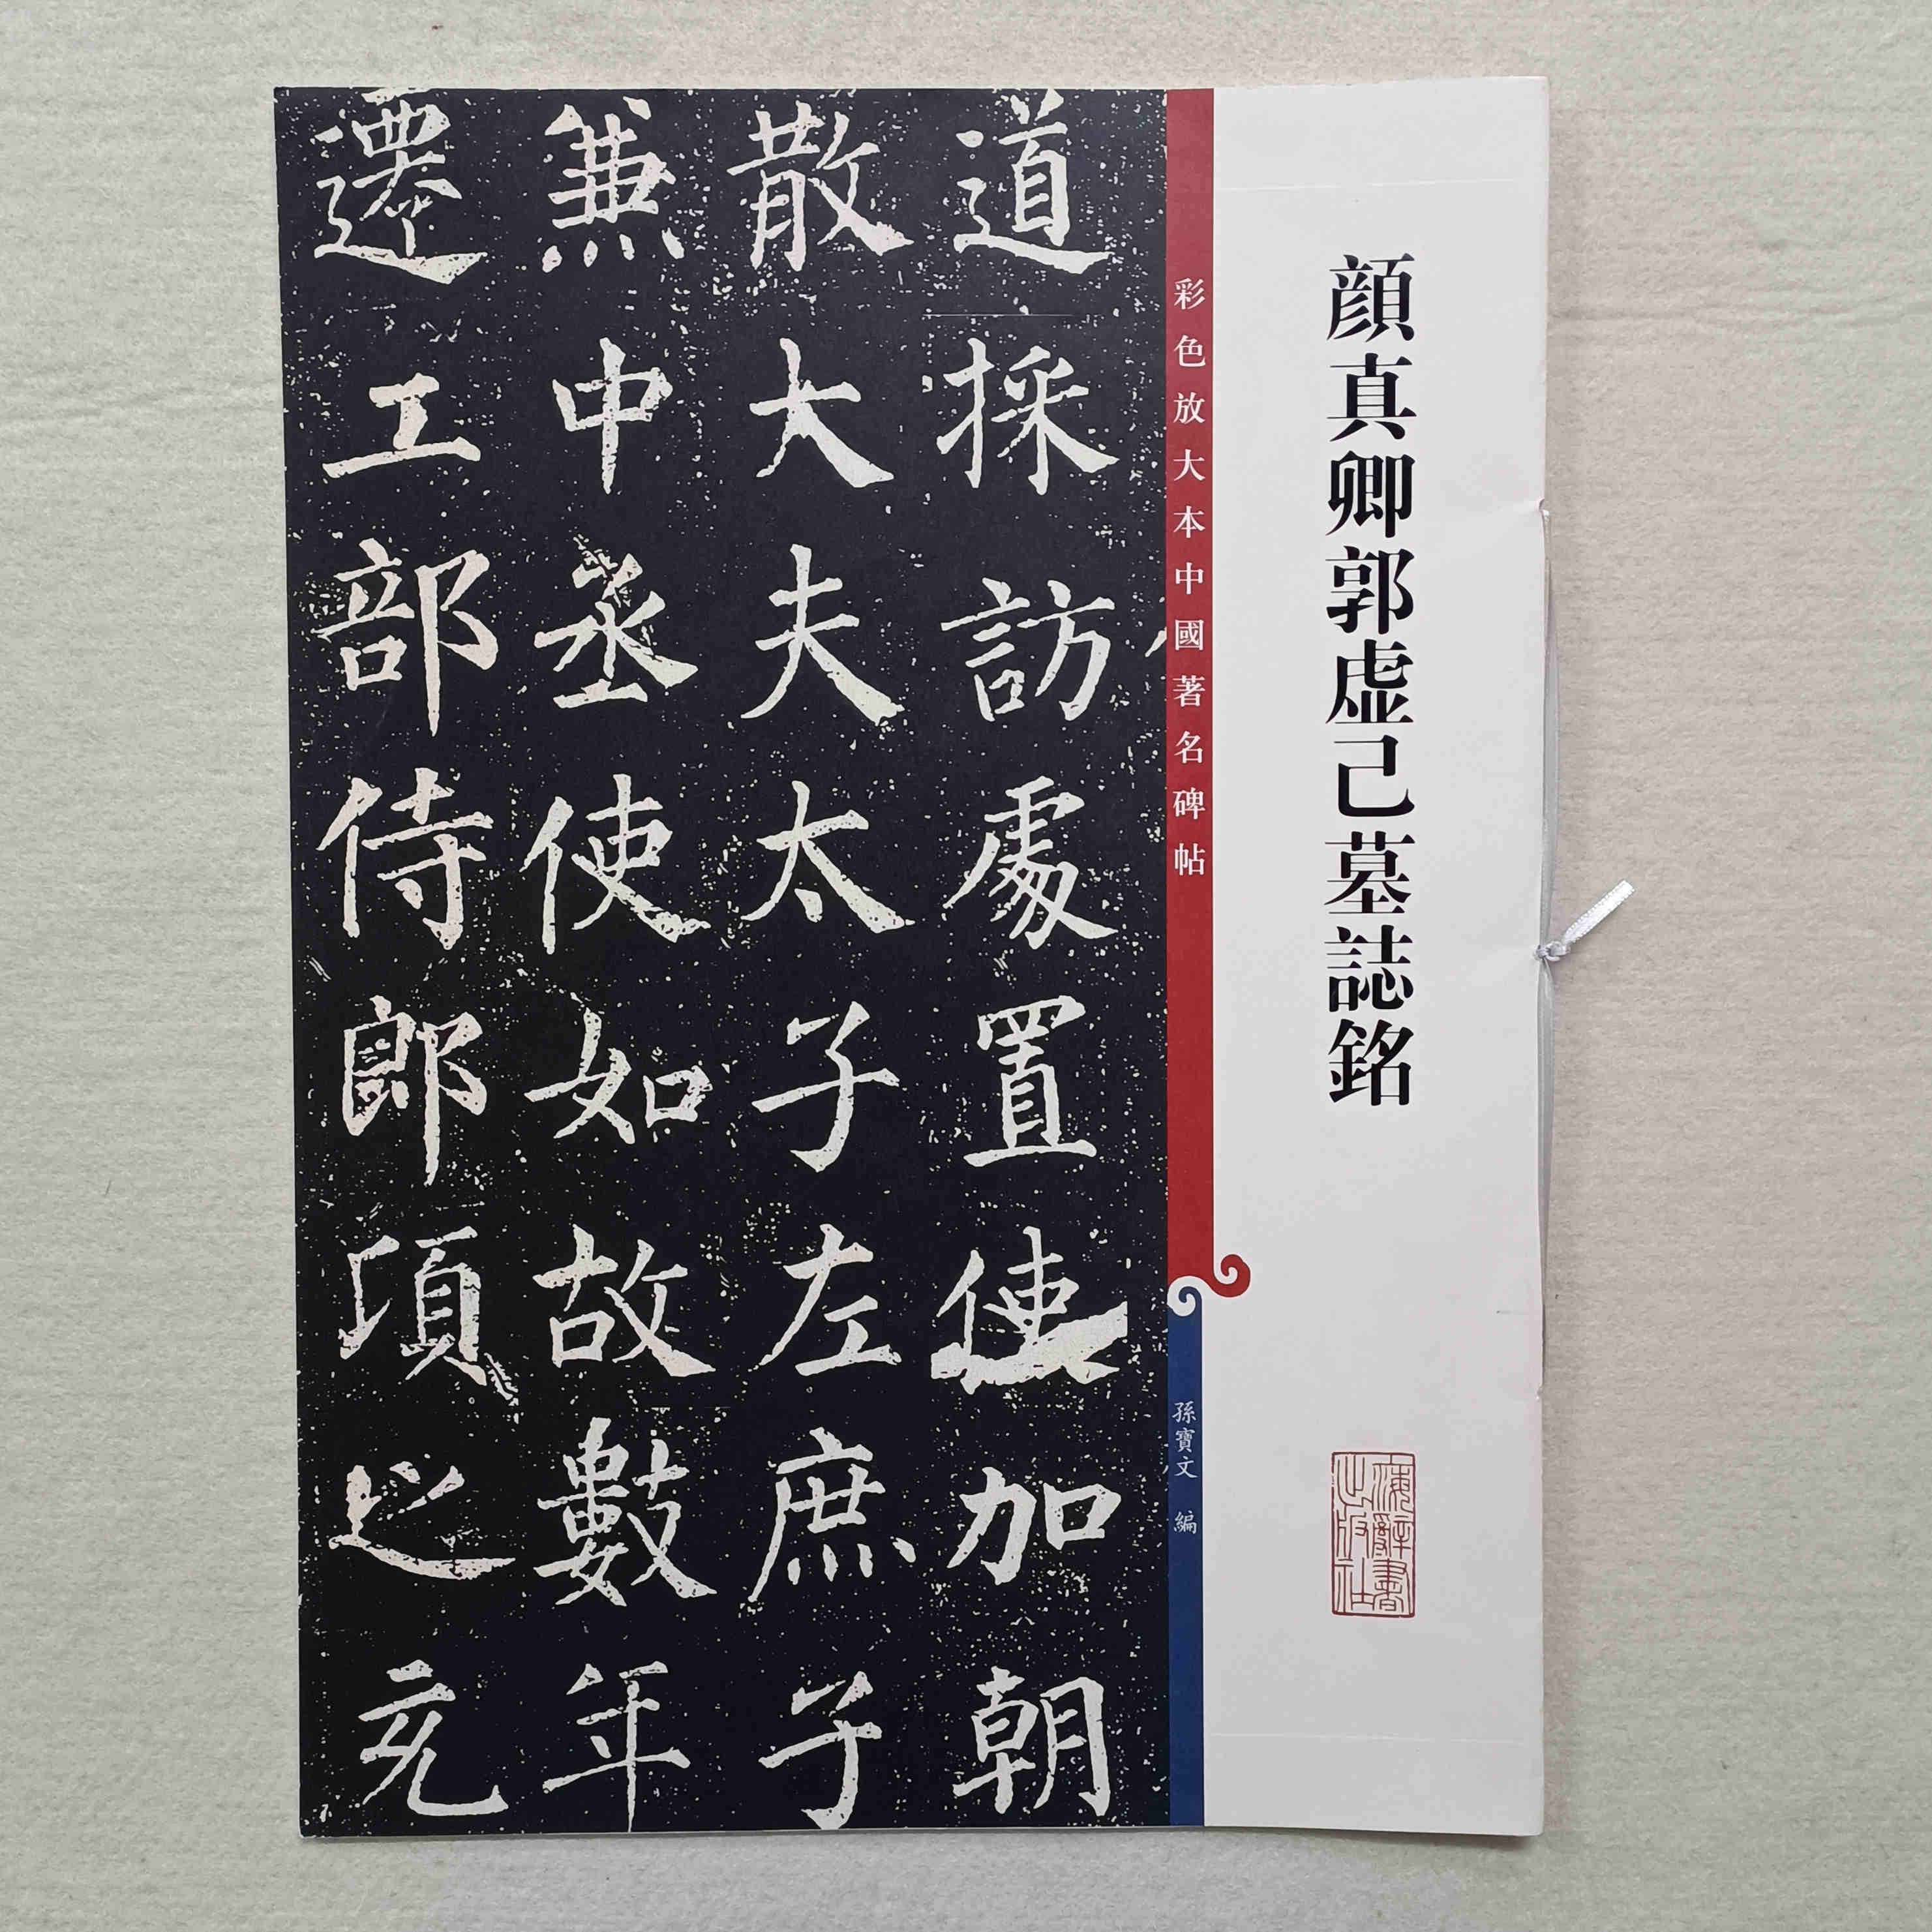 顏真卿郭虚己墓誌銘
海辭書
出版社
彩色放大本中國著名碑帖
孫寶文 編
道採訪處置使加朝
散大夫太子左庶子
兼中丞使如故數年
遷工部侍郎項之充